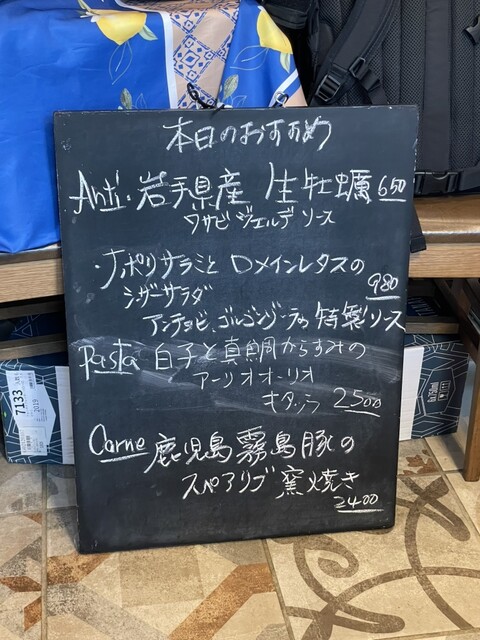 本日のおすすめ
Anti ・岩手県産 生牡蠣 650
ワサビジェルデソース
・ナポリサラミとロメインレタスの
シーザーサラダ 980
アンチョビ、ゴルゴンゾーラの特製ソース
Pasta 白子と真鯛からすみの
アーリオオーリオ
キタッラ 2500
Carne 鹿児島霧島豚の
スペアリブ窯焼き
2400
7133
2019